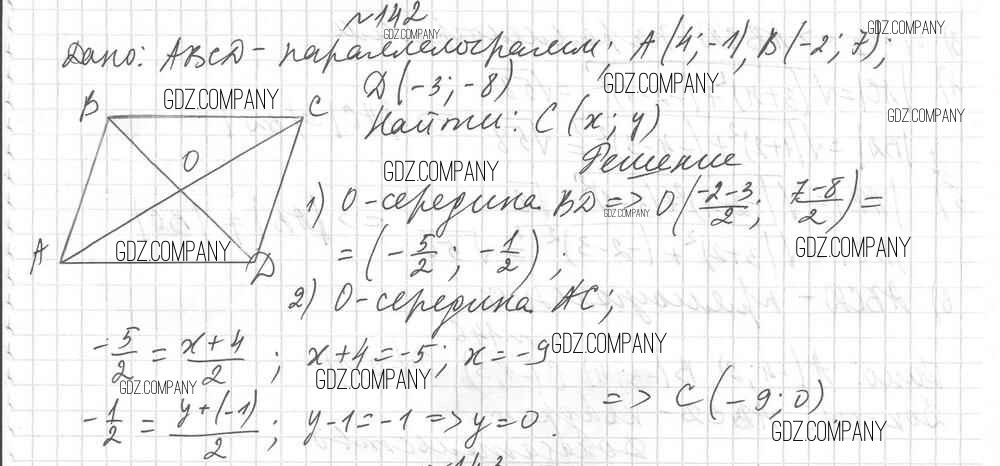 №142
GDZ.COMPANY
Дано: ABCD - параллелограмм; A(4;-1), B(-2;7);
GDZ.COMPANY
D(-3;-8)
GDZ.COMPANY
GDZ.COMPANY
B C
Найти: C(x;y)
GDZ.COMPANY
O
GDZ.COMPANY
Решение
1) O-середина BD => O(\frac{-2-3}{2}; \frac{7-8}{2}) =
GDZ.COMPANY
A D
GDZ.COMPANY
= (-\frac{5}{2}; -\frac{1}{2});
GDZ.COMPANY
2) O-середина AC;
-\frac{5}{2} = \frac{x+4}{2}; x+4=-5; x=-9
GDZ.COMPANY
GDZ.COMPANY
GDZ.COMPANY
-\frac{1}{2} = \frac{y+(-1)}{2}; y-1=-1 => y=0.
=> C(-9;0)
GDZ.COMPANY